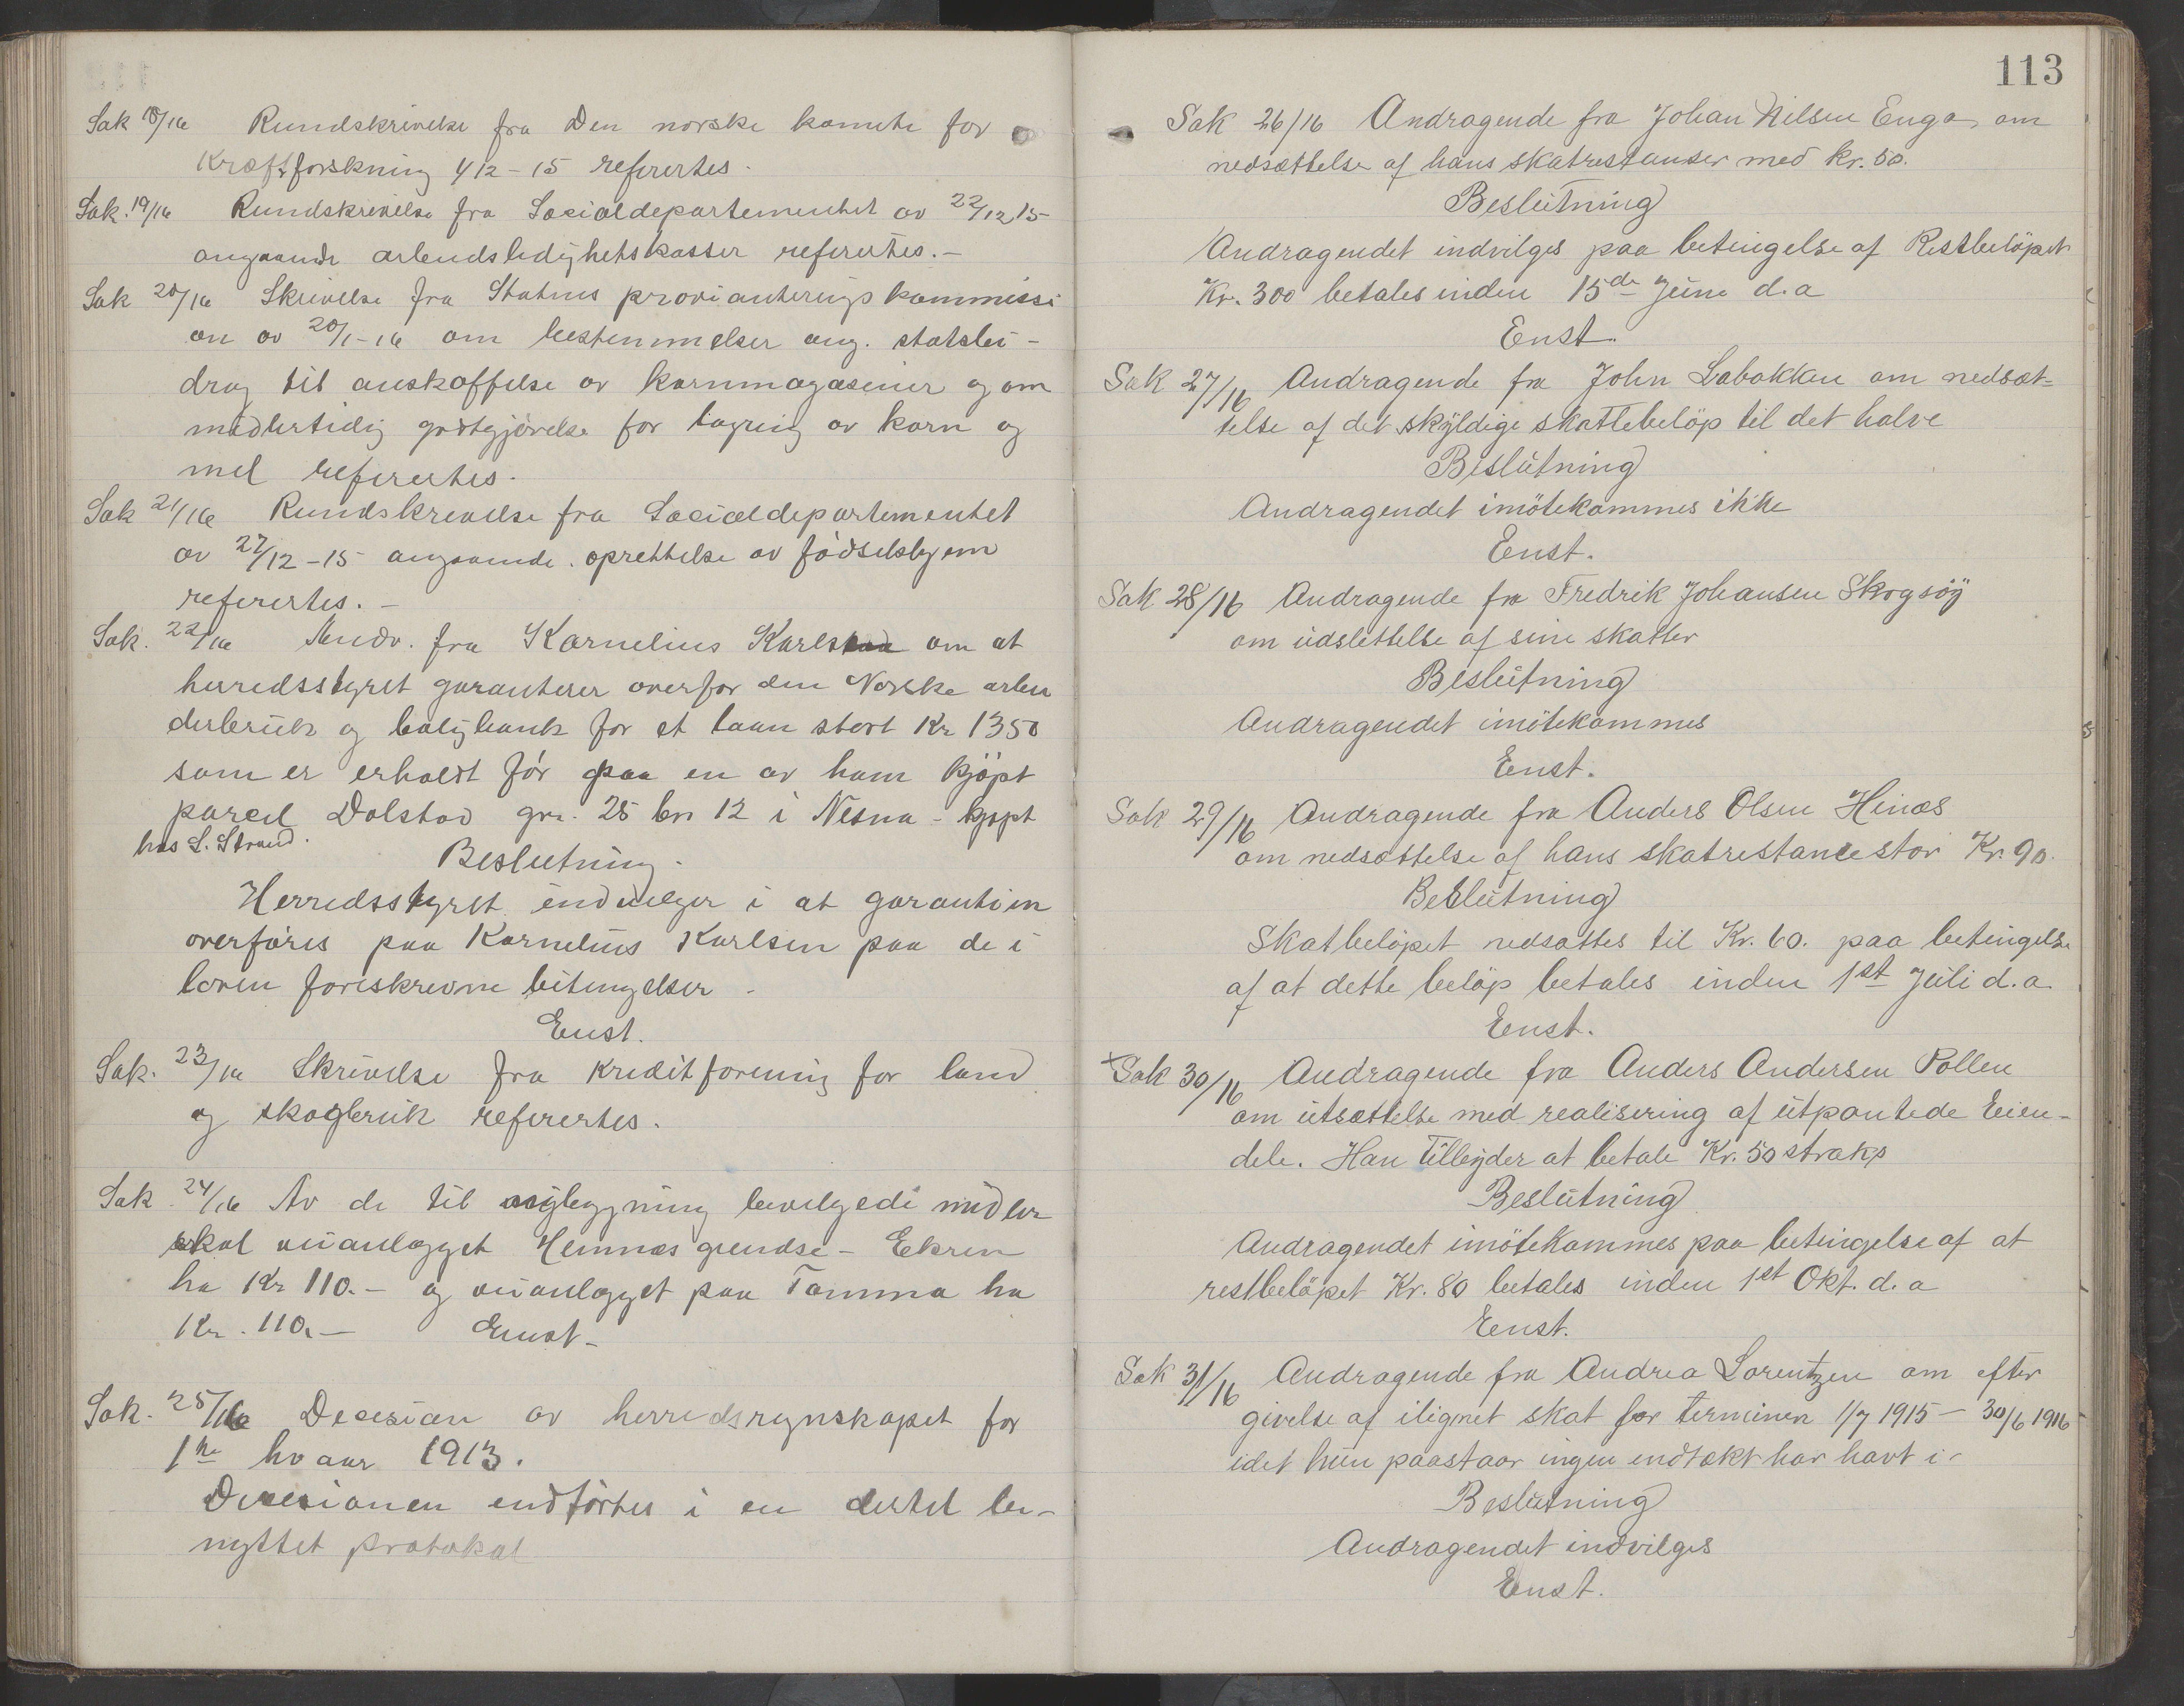 Sak 18/16 Rundskrivelse fra Den norske komite for
Kræftforskning 4/12-15 refertes.
Sak. 19/16 Rundskrivelse fra Socialdepartementet av 22/12 15
angaaende arbeidsledighetskasser refertes.-
Sak 20/16 Skrivelse fra Statens provianteringskommissi
on av 20/1-16 om bestemmelser ang. statsbi-
drag til anskaffelse av kornmagasiner og om
midlertidig godtgjörelse for lagring av korn og
mel refertes.
Sak 21/16 Rundskrivelse fra Socialdepartementet
av 27/12-15 angaaende oprettelse av födselshjem
refertes.-
Sak. 22/16 Andr. fra Kornelius Karls om at
herredsstyret garanterer overfor den Norske arbei
derbruk og boligbank for et laan stort Kr 1350
som er erholdt för paa en av ham kjöpt
parcel Dalstad gnr. 25 bn 12 i Nesna - kjöpt
hos L. Strand.
Beslutning.
Herredsstyret indvilger i at garantien
overföres paa Kornelius Karlsen paa de i
loven foreskrevne betingelser.
Enst.
Sak. 23/16 Skrivelse fra Kreditforening for land
og skogbruk refertes.
Sak. 24/16 Av de til veibygning bevilgede midler
skal veianlægget Hemnes grendse - Ekren
ha Kr 110.- og veianlægget paa Tomma ha
Kr. 110.- Enst-
Sak. 25/16 Decision av herredsregnskapet for
1ste hvaar 1913.
Decisionen endförtes i en dertil be-
nyttet protokol
113
Sak 26/16 Andragende fra Johan Nilsen Enga, om
nedsættelse af hans skatrestanser med kr. 50.
Beslutning
Andragendet indvilges paa betingelse af Restbelöpet
Kr. 300 betales inden 15de Juni d.a
Enst.
Sak 27/16 Andragende fra John Labakken om nedsæt=
telse af det skyldige skattebelöp til det halve
Beslutning
Andragendet imötekommes ikke
Enst.
Sak 28/16 Andragende fra Fredrik Johansen Skogsöy
om udslettelse af sine skatter
Beslutning
Andragendet imötekommes
Enst.
Sak 29/16 Andragende fra Anders Olsen Hinæs
om nedsættelse af hans skatrestance stor Kr. 90.
Beslutning
Skatbelöpet nedsættes til Kr. 60. paa betingelse
af at dette belöp betales inden 1st Juli d.a.
Enst.
+Sak 30/16 Andragende fra Anders Andersen Pollen
om utsættelse med realisering af utpantede Eien-
dele. Han tilbyder at betale Kr. 50 straks
Beslutning
Andragendet imötekommes paa betingelse af at
restbelöpet Kr. 80 betales inden 1st Okt. d.a
Enst.
Sak 31/16 Andragende fra Andrea Lorentzen om efter
givelse af ilignet skat for terminen 1/7 1915 - 30/6 1916
idet hun paastaar ingen endtækt har havt i-
Beslutning
Andragendet indvilges
Enst.